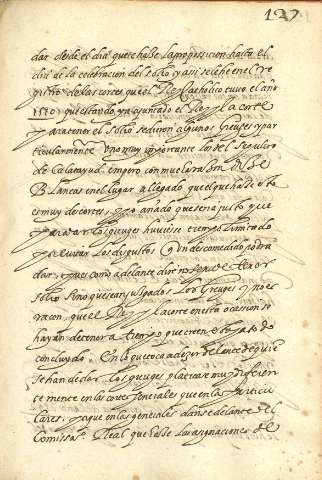 127
dar desde el dia que se hasse la proposicion hasta el
dia de la celebracion del solio y ansi se lehe en el re
gistro de las cortes que el Rey Catholico tuvo el año
1510 que estando ya ajuntado el Rey y la corte
para tener el solio se dieron algunos Greuges y par
ticularmente uno muy importante los del sepulcro
de Calatayud, empero con muela
Blancas en el lugar allegado que el que hasse esto
es muy descortes, y yo añado que seria justo que
para dar los greuges huviesse tiempo limitado
para evitar los disgustos que un descomedido podria
dar, pues como adelante dire no se puede tener
solio sino que sean juzgados los Greuges y no es
racon, que el Rey y la corte en esta ocasion se
hayan detener a tiempo que creen esta todo
concluydo. En lo que toca a dezir delante de quien
se han de dar los greuges platicase muy diferen
te mente en las cortes generales que en las particu
lares, ya que en las generales danse delante del
Comissario Real que hasse las asignaciones de